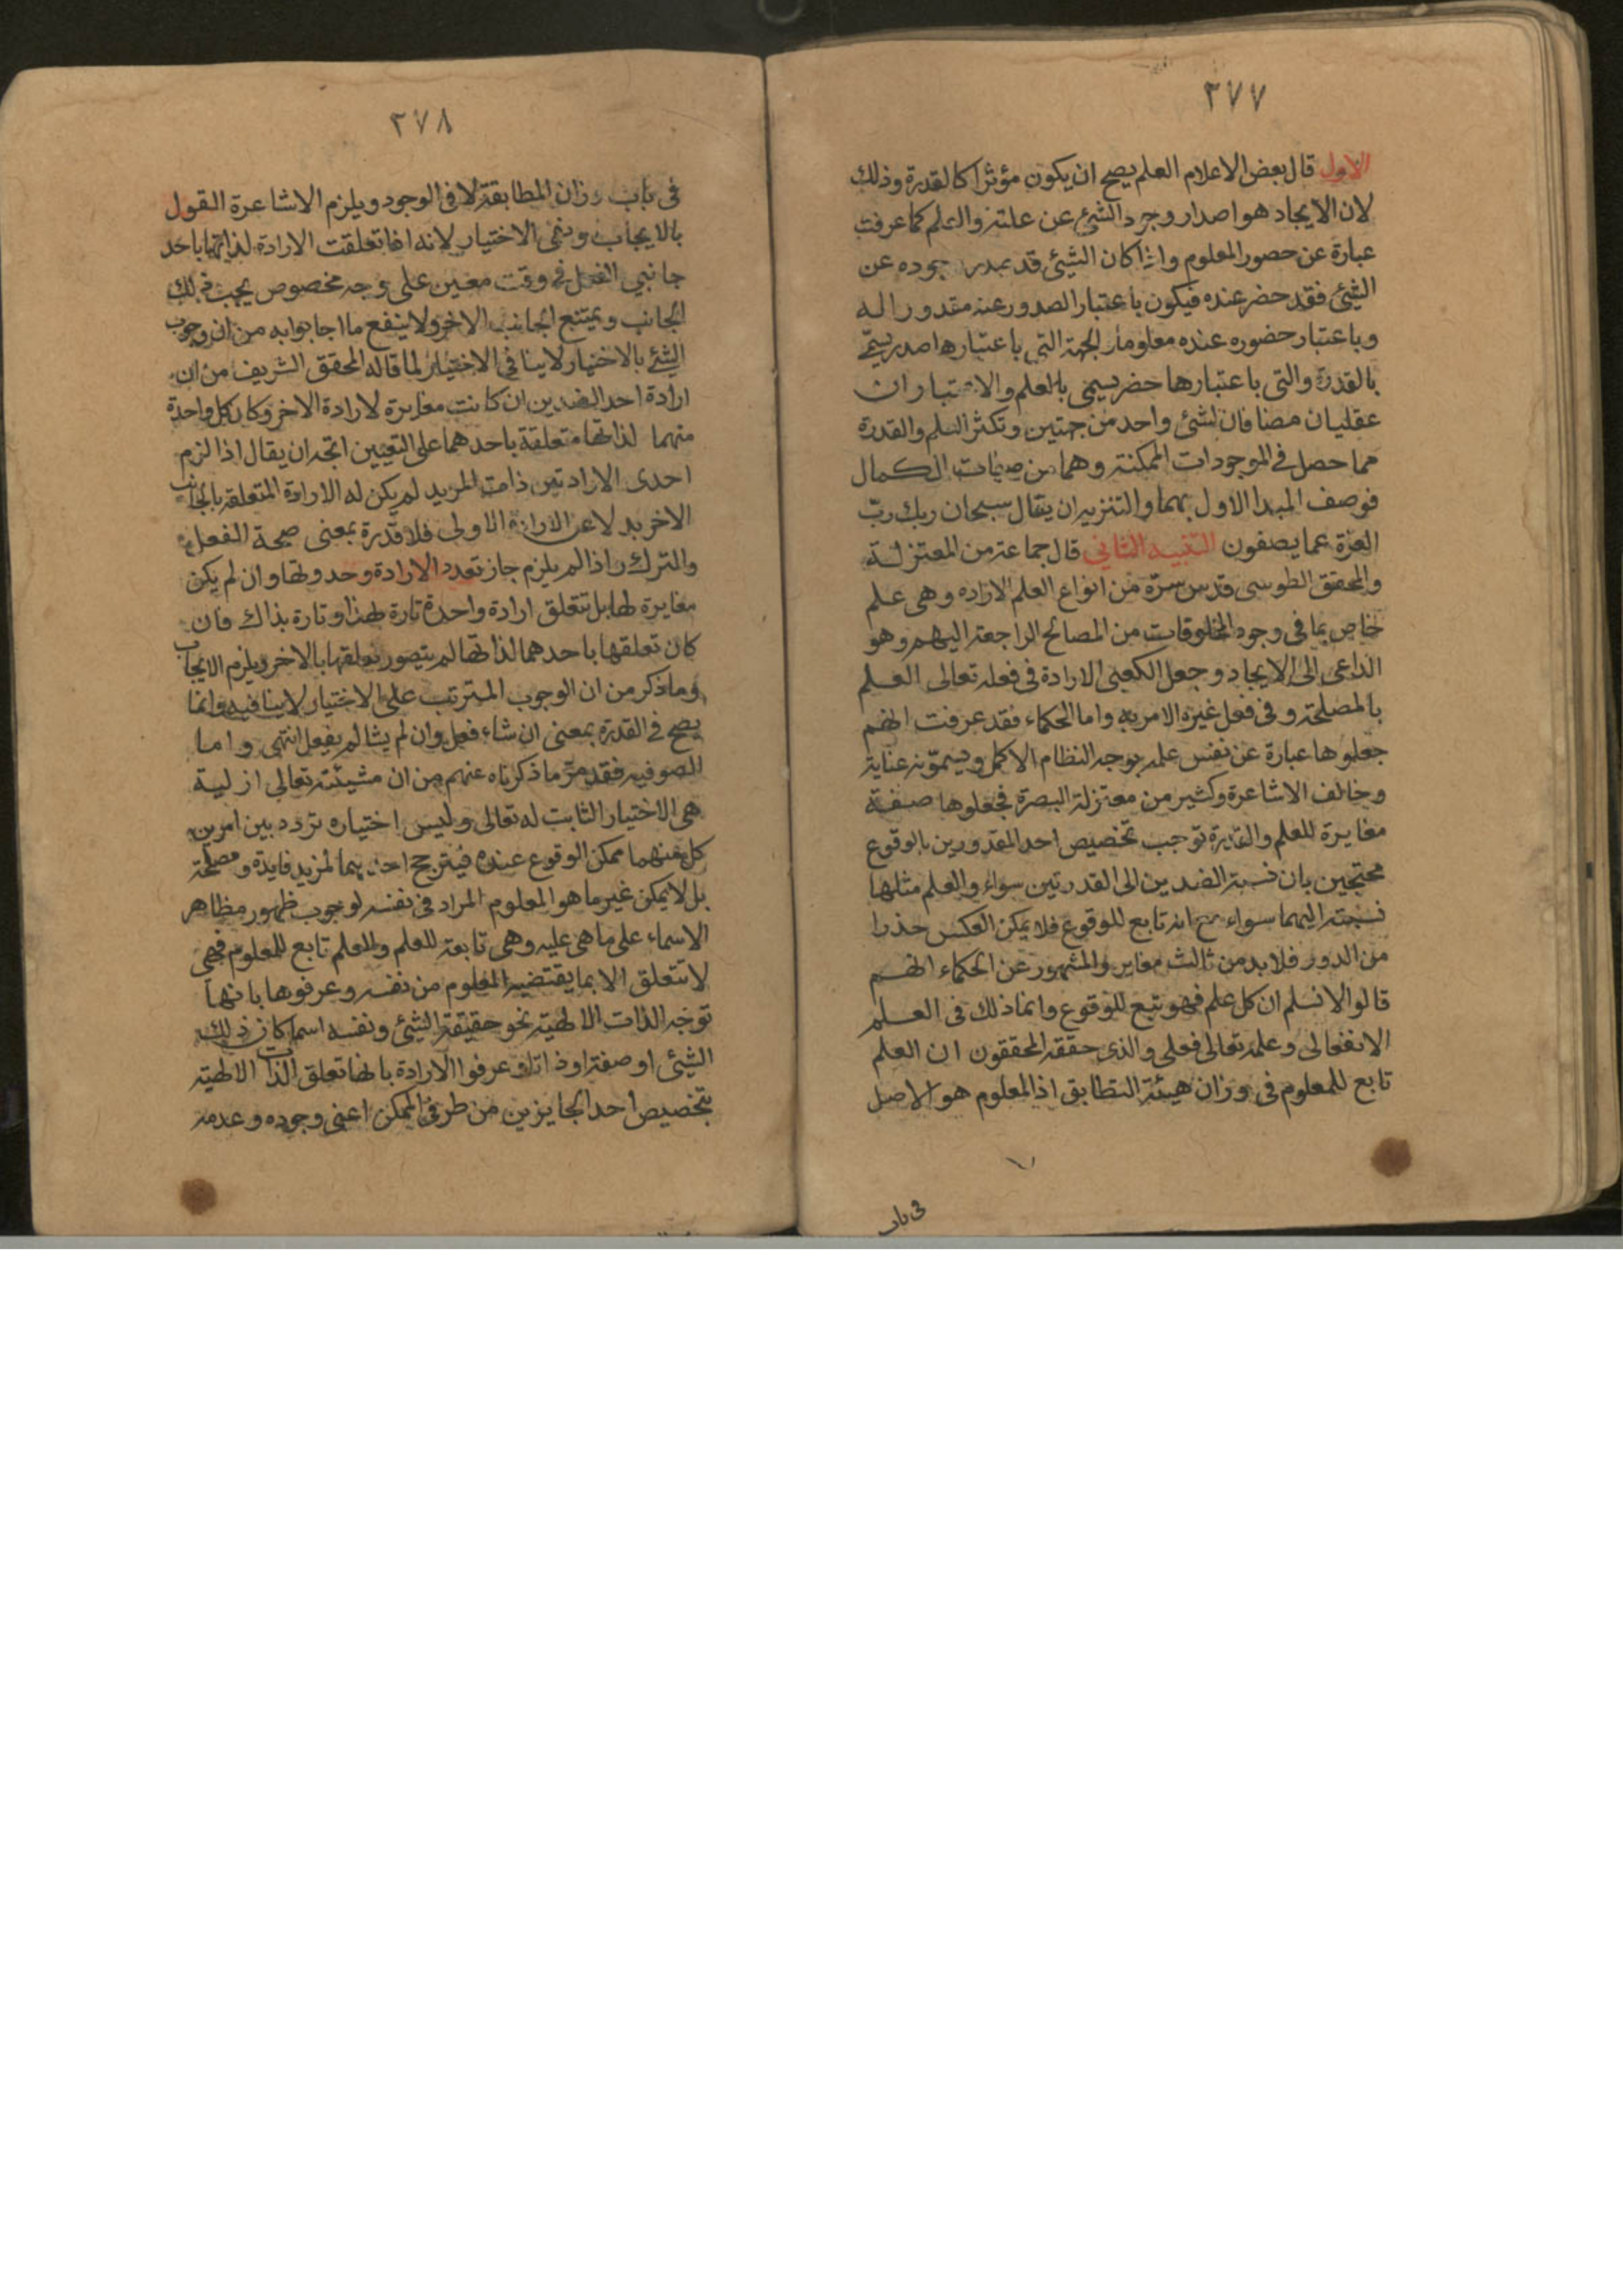 ٢٧٧
الاول قال بعض الاعلام العلم يصح ان يكون مؤثرا كالقدرة وذلك
لان الايجاد هو اصدار وجود الشئ عن علته والعلم كما عرفت
عبارة عن حصور المعلوم واذا كان الشيئ قد صدر وجوده عن
الشئ فقد حضر عنده فيكون باعتبار الصدور عنه مقدورا له
وباعتبار حضوره عنده معلوما الجهة التى باعتبارها صدر يسمى
بالقدرة والتى باعتبارها حضر يسمى بالعلم والاعتباران
عقليان مضافان لشئ واحد من جهتين وتكثر العلم والقدرة
مما حصل فى الموجودات الممكنة وهما من صفات الكمال
فوصف المبدا الاول بهما والتنزيه ان يقال سبحان ربك ربّ
العزة عما يصفون التنبيه الثاني قال جماعة من المعتزلة
والمحقق الطوسى قدس سره من انواع العلم الاراده وهى علم
خاص بما فى وجود المخلوقات من المصالح الراجعة اليهم وهو
الداعى الى الايجاد وجعل الكعبى الارادة فى فعله تعالى العلم
بالمصلحة وفى فعل غيره الامر به واما الحكماء فقد عرفت انهم
جعلوها عبارة عن نفس علمه بوجه النظام الاكمل ويسمّونه عناية
وخالف الاشاعرة وكثير من معتزلة البصرة فجعلوها صفة
مغايرة للعلم والقدرة توجب تخصيص احد المقدورين بالوقوع
محتجين بان نسبة الضدين الى القدرتين سواء والعلم مثلها
نسبته اليهما سواء مع انه تابع للوقوع فلا يمكن العكس حذرا
من الدور فلا بد من ثالث مغاير والمشهور عن الحكماء انهم
قالوا لا نسلم ان كل علم فهو تبع للوقوع وانما ذلك فى العلم
الانفعالى وعلمه تعالى فعلى والذى حققه المحققون ان العلم
تابع للمعلوم فى وزان هيئة التطابق اذ المعلوم هو الاصل
فى باب
٢٧٨
فى باب وزان المطابقة لا فى الوجود ويلزم الاشاعرة القول
بالايجاب ونفى الاختيار لانه اذا تعلقت الارادة لذاتها باحد
جانبي الفعل فى وقت معين على وجه مخصوص يجب ذلك
الجانب ويمتنع الجانب الاخر ولا ينفع ما اجابوا به من ان وجوب
الشئ بالاختيار لا ينافى الاختيار لما قاله المحقق الشريف من ان
ارادة احد الضدين ان كانت مغايرة لارادة الاخر وكان كل واحدة
منهما لذاتها متعلقة باحدهما على التعيين اتجه ان يقال اذا لزم
احدى الارادتين ذات المريد لم يكن له الارادة المتعلقة بالجانب
الاخر بدلا عن الارادة الاولى فلا قدرة بمعنى صحة الفعل
والترك واذا لم يلزم جاز تعدد الارادة وحدوثها وان لم يكن
مغايرة لها بل تتعلق ارادة واحدة تارة لهذا وتارة بذاك فان
كان تعلقها باحدهما لذاتها لم يتصور تعلقها بالاخر ويلزم الايجاب
وما ذكر من ان الوجوب المترتب على الاختيار لا ينافيه وانما
يصح فى القدرة بمعنى ان شاء فعل وان لم يشا لم يفعل انتهى واما
الصوفيه فقد مرّ ما ذكرناه عنهم من ان مشيئته تعالى ازلية
هى الاختيار الثابت له تعالى وليس اختياره تردد بين امرين
كل منهما ممكن الوقوع عنده فيترجح احديهما لمزيد فايدة ومصلحة
بل لا يمكن غير ما هو المعلوم المراد فى نفسه لوجوب ظهور مظاهر
الاسماء على ما هى عليه وهى تابعة للعلم والعلم تابع للمعلوم فهى
لا تتعلق الا بما يقتضيه المعلوم من نفسه وعرفوها بانها
توجه الذات الالهية نحو حقيقة الشيئ ونفسه اسما كان ذلك
الشيئ او صفة او ذاتا وعرفوا الارادة بانها تعلق الذات الالهية
بتخصيص احد الجايزين من طرفى الممكن اعنى وجوده وعدمه